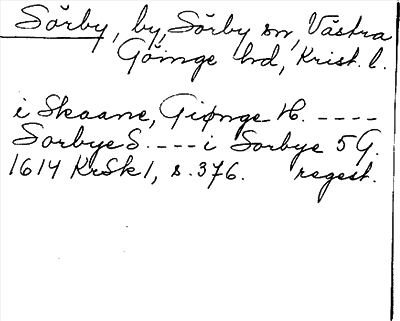 Sörby, by, Sörby sn, Västra
Göinge hd, Krist. l.
i Skaane, Giønge H. ----
Sorbye S. ---- i Sorbye 5 G.
1614 KrSk 1, s. 376. regest.